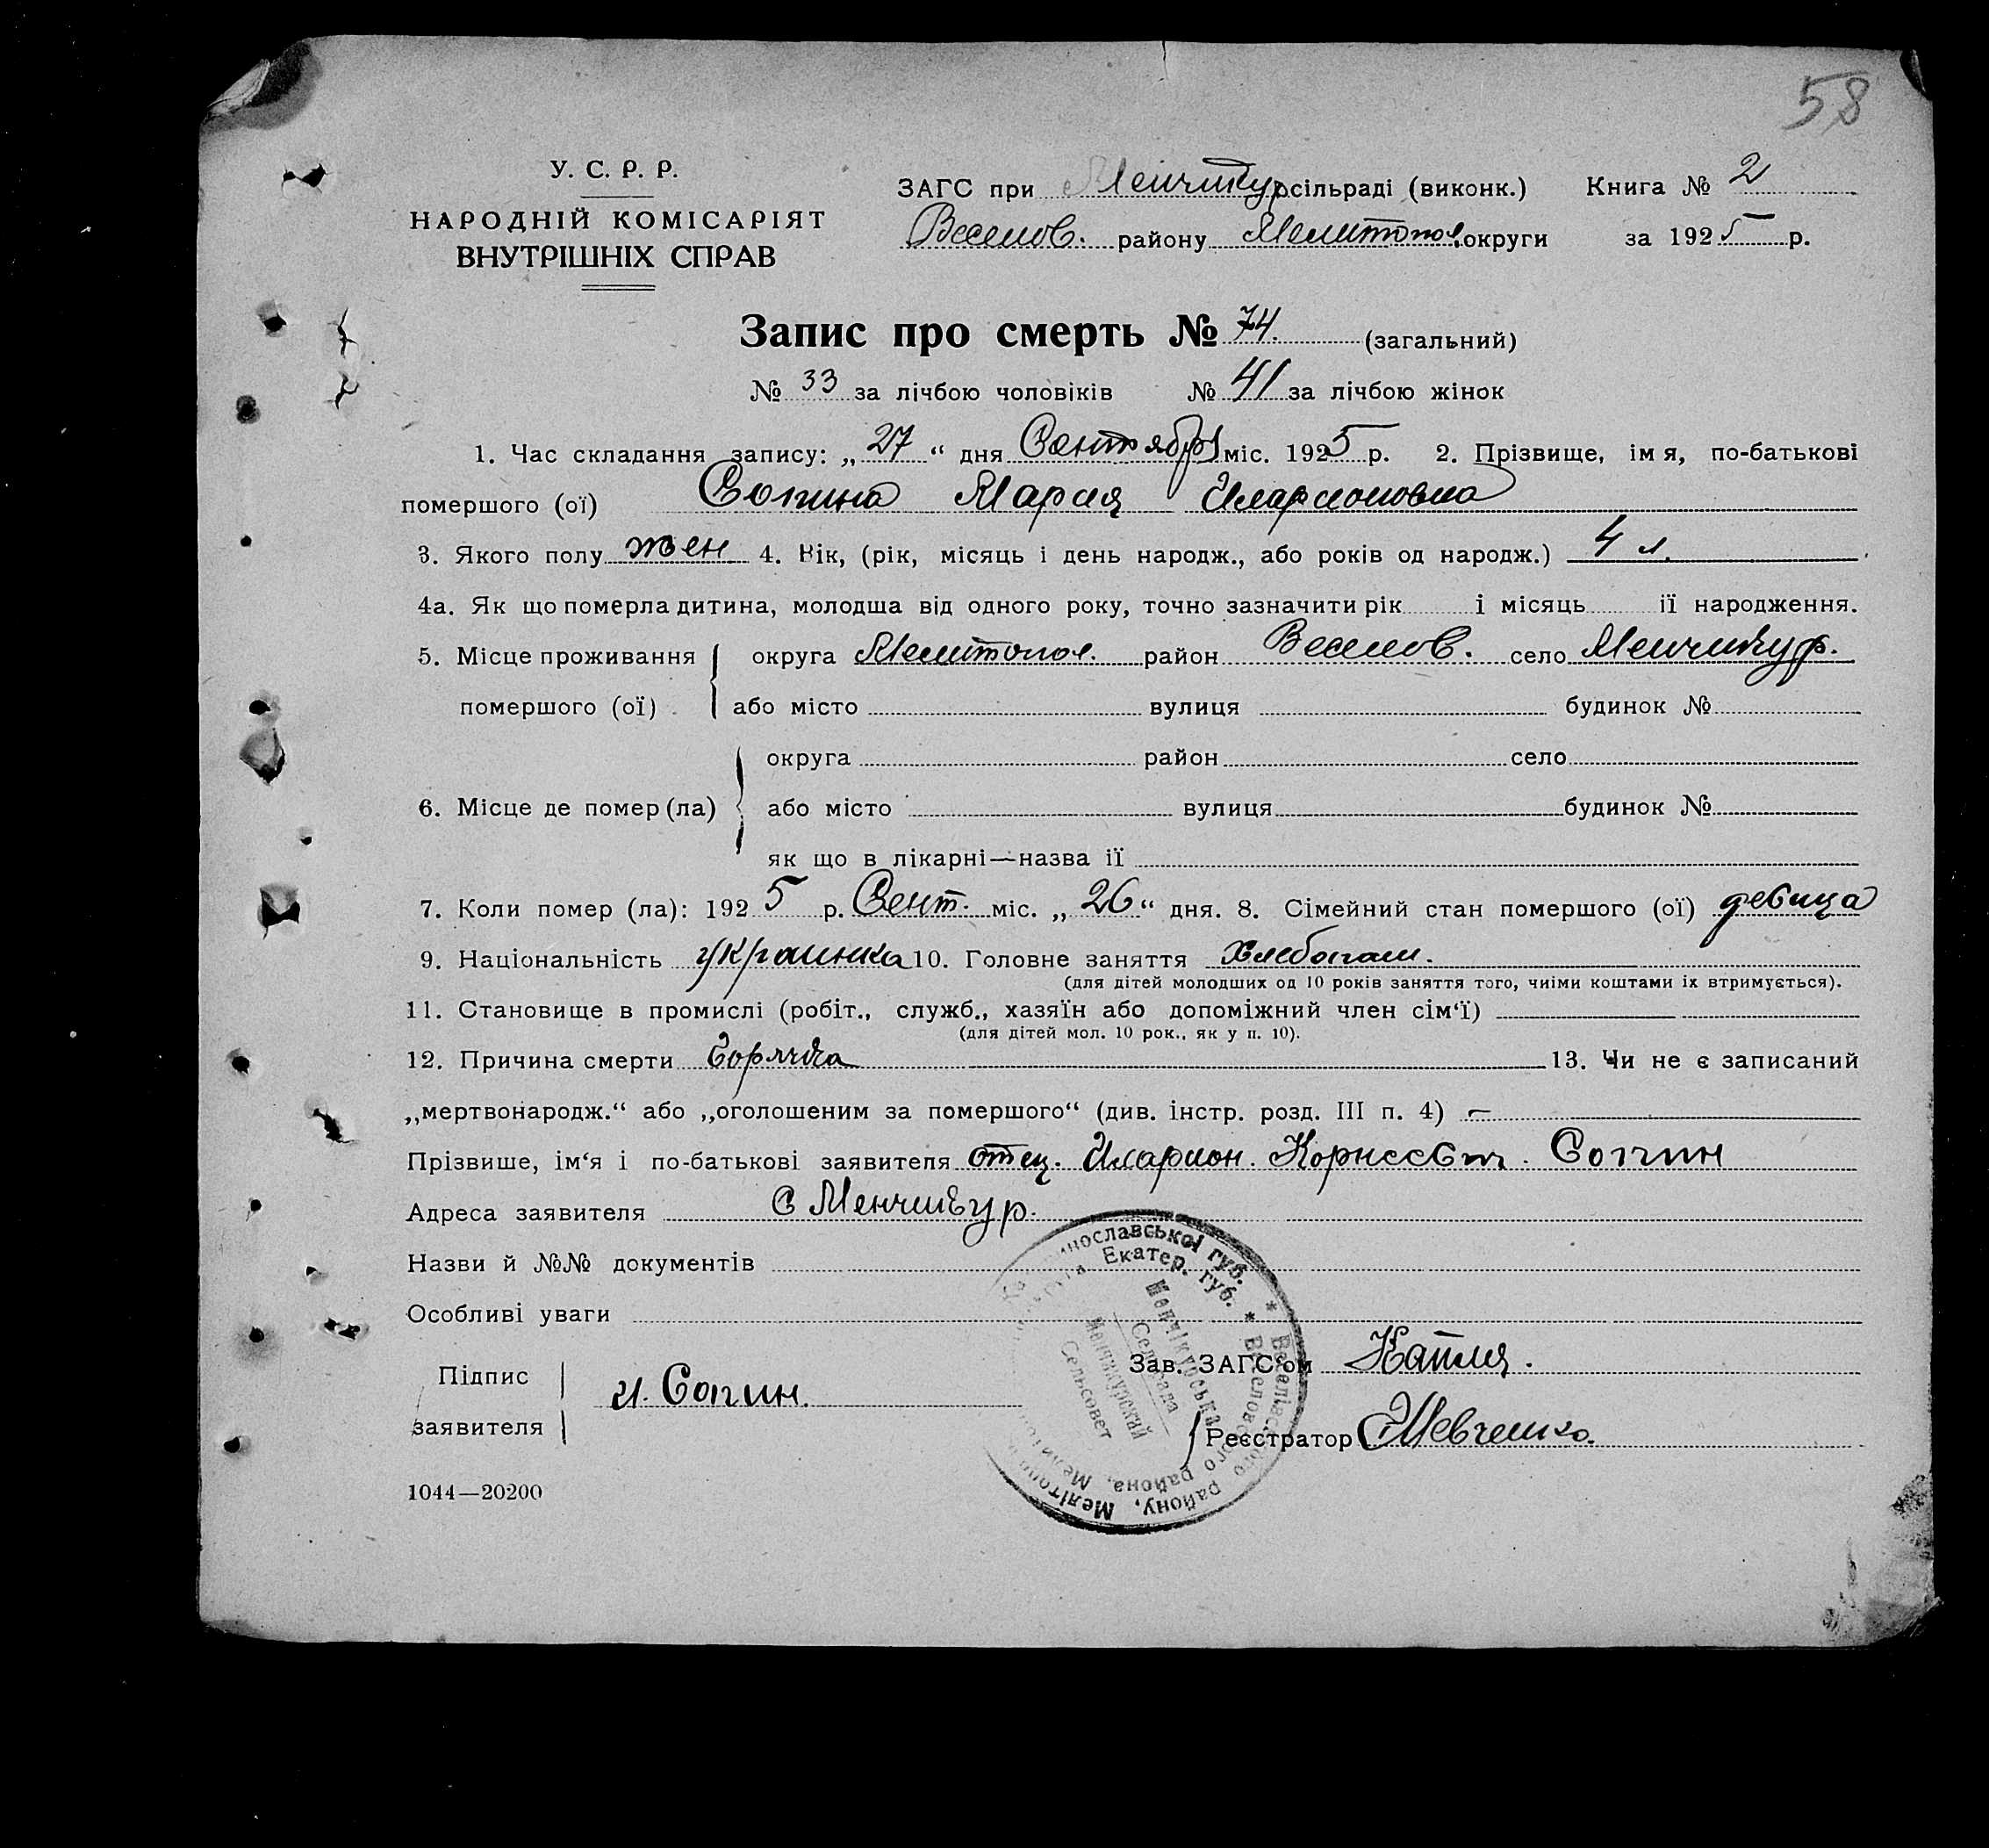 58
У. С. Р. Р.
НАРОДНІЙ КОМІСАРІЯТ
ВНУТРІШНІХ СПРАВ
ЗАГС при Менчикур сільраді (виконк.) Книга № 2
Веселов. району Мелитопол. округи за 1925 р.
Запис про смерть № 74. (загальний)
№ 33 за лічбою чоловіків № 41 за лічбою жінок
1. Час складання запису: „27“ дня Сентября міс. 1925 р. 2. Прізвище, імя, по-батькові
помершого (ої) Сопина Мария Иларионовна
3. Якого полу жен 4. Вік, (рік, місяць і день народж., або років од народж.) 4 л.
4а. Як що померла дитина, молодша від одного року, точно зазначити рік і місяць її народження.
5. Місце проживання помершого (ої) округа Мелитопол. район Веселов. село Менчикур.
або місто вулиця будинок №
6. Місце де помер (ла) округа район село
або місто вулиця будинок №
як що в лікарні—назва її
7. Коли помер (ла): 1925 р. Сент. міс. „26“ дня. 8. Сімейний стан помершого (ої) девица
9. Національність украинка 10. Головне заняття Хлебопаш.
(для дітей молодших од 10 років заняття того, чиїми коштами їх втримується).
11. Становище в промислі (робіт., служб., хазяїн або допоміжний член сім‘ї)
(для дітей мол. 10 рок., як у п. 10).
12. Причина смерти Горячка 13. Чи не є записаний
„мертвонародж.“ або „оголошеним за помершого“ (див. інстр. розд. III п. 4) —
Прізвище, ім‘я і по-батькові заявителя отец. Иларион. Корнеевич. Сопин
Адреса заявителя С Менчикур.
Назви й №№ документів
Особливі уваги
Підпис заявителя и. Сопин.
Зав. ЗАГС‘ом Капля.
Реєстратор Шевченко.
1044—20200
нославської губ. * Веселівського району, Меліто
Екатер. губ. * Веселовского района, Мелито
Менчікурська
Сельрада
Менчикурский
Сельсовет